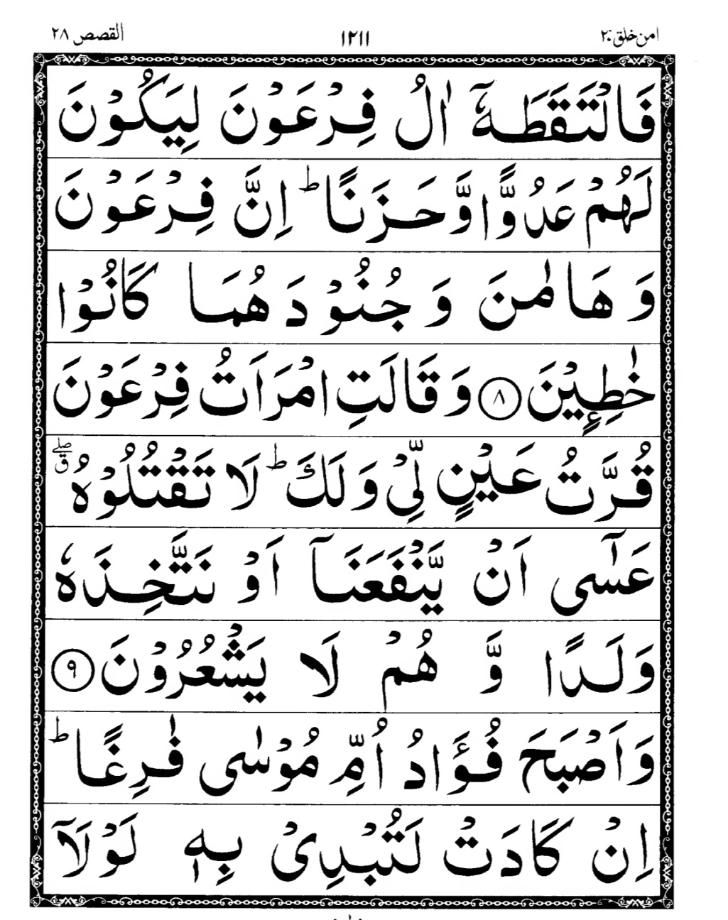 امن خلق ٢٠ ١٢١١ القصص ٢٨
فَالْتَقَطَهٗۤ اٰلُ فِرْعَوْنَ لِیَكُوْنَ
لَهُمْ عَدُوًّا وَّحَزَنًاؕ اِنَّ فِرْعَوْنَ
وَهَامٰنَ وَجُنُوْدَهُمَا كَانُوْا
خٰطِـِٕیْنَ ٨ وَقَالَتِ امْرَاَتُ فِرْعَوْنَ
قُرَّتُ عَیْنٍ لِّیْ وَلَكَؕ لَا تَقْتُلُوْهُ ۖق
عَسٰۤی اَنْ یَّنْفَعَنَاۤ اَوْ نَتَّخِذَهٗ
وَلَدًا وَّهُمْ لَا یَشْعُرُوْنَ ٩
وَاَصْبَحَ فُؤَادُ اُمِّ مُوْسٰی فٰرِغًاؕ
اِنْ كَادَتْ لَتُبْدِیْ بِهٖ لَوْلَاۤ